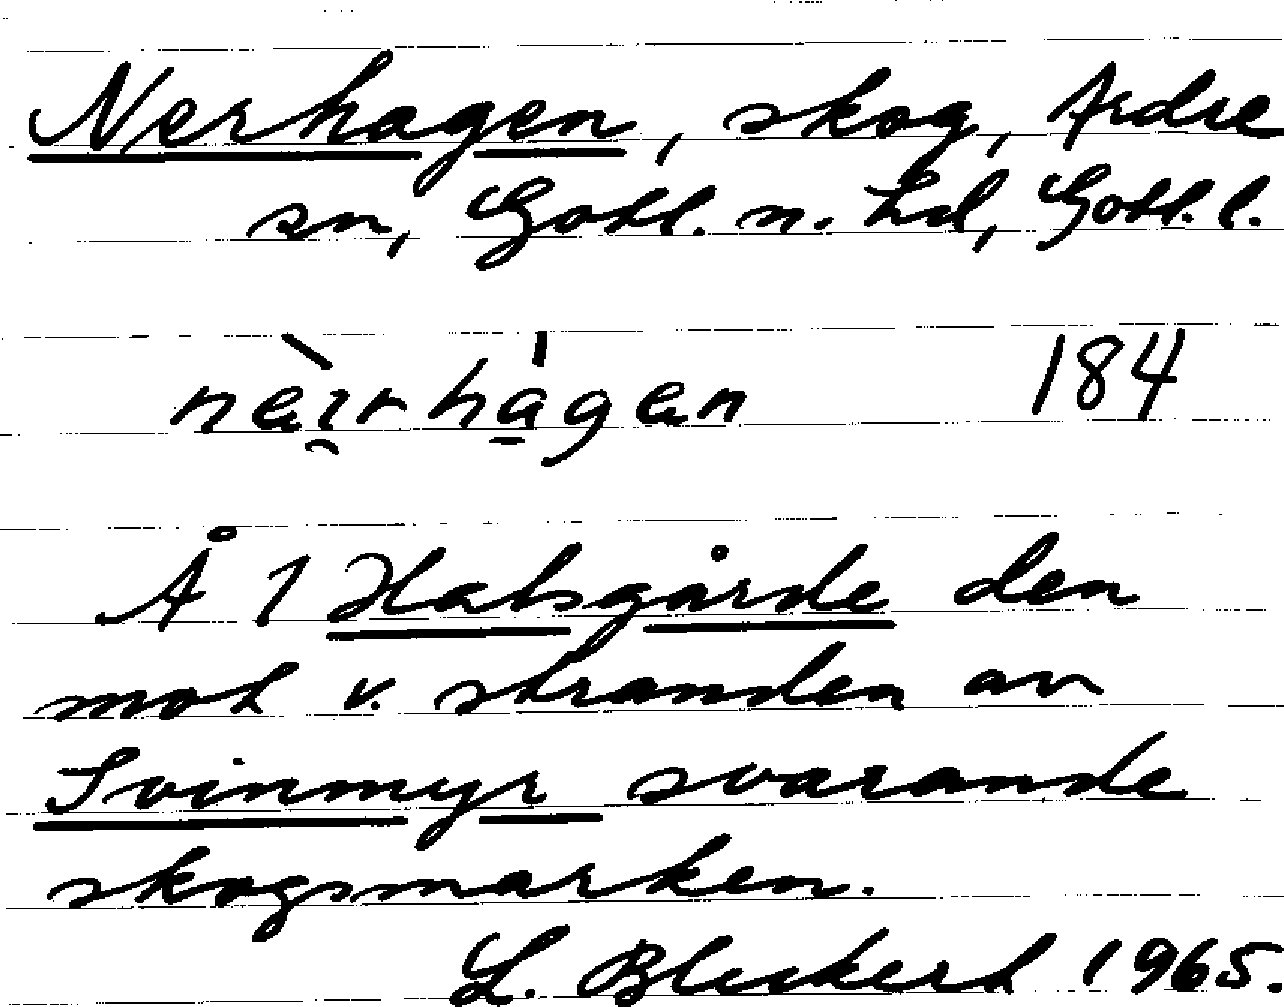 Nerhagen, skog, Ardre
sn, Gotl. n. hd, Gotl. l.
nèi̯rhá̱gen 184
Å 1 Halsgårde den
mot v. stranden av
Svinmyr svarande
skogsmarken.
L. Bleckert 1965.